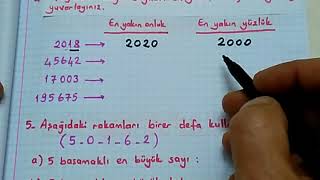 yuvarlayınız.
En yakın onluk En yakın yüzlük
2018 → 2020 2000
45642 →
17003 →
195675 →
5- Aşağıdaki rakamları birer defa
(5-0-1-6-2)
a) 5 basamaklı en büyük sayı :